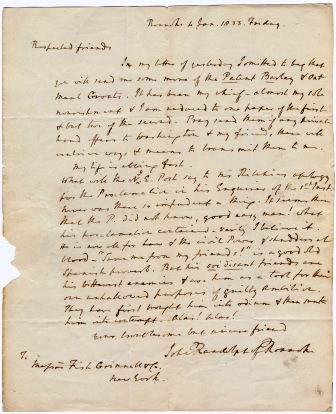 Roanoke 4 Jan. 1833. Friday.
Respected friends
In my letter of yesterday I omitted to beg that
ye will send me some more of the Patent Barley & Oat
Meal Groats. It has been my chief - almost my sole
nourishment & I am reduced to one paper of the first
& but two of the second. Pray send them if any private
hand offers to Washington & my friends there will
ways & means to transmit them to me.
My life is ebbing fast.
What will the N.E. Post say to his Ritchie's apology
for the Proclamation in his Enquirer of the 1st Inst.
never was there so impudent a thing. It seems then
that the P. did not know, good easy man! what
his proclamation contained. Verily I believe it.
He is now for and the civil Power & shudders at
blood - "Save me from my friends," is a good old
Spanish proverb. But his soi disant friends are
his bitterest enemies & use him as a tool for their
own unhallowed purposes of guilty ambition.
They have first brought him into odium & then sunk
him into contempt. Alas! alas!
Your troublesome but sincere friend
John Randolph of Roanoke
To
Messrs Fish Grinnell & Co.
New York.